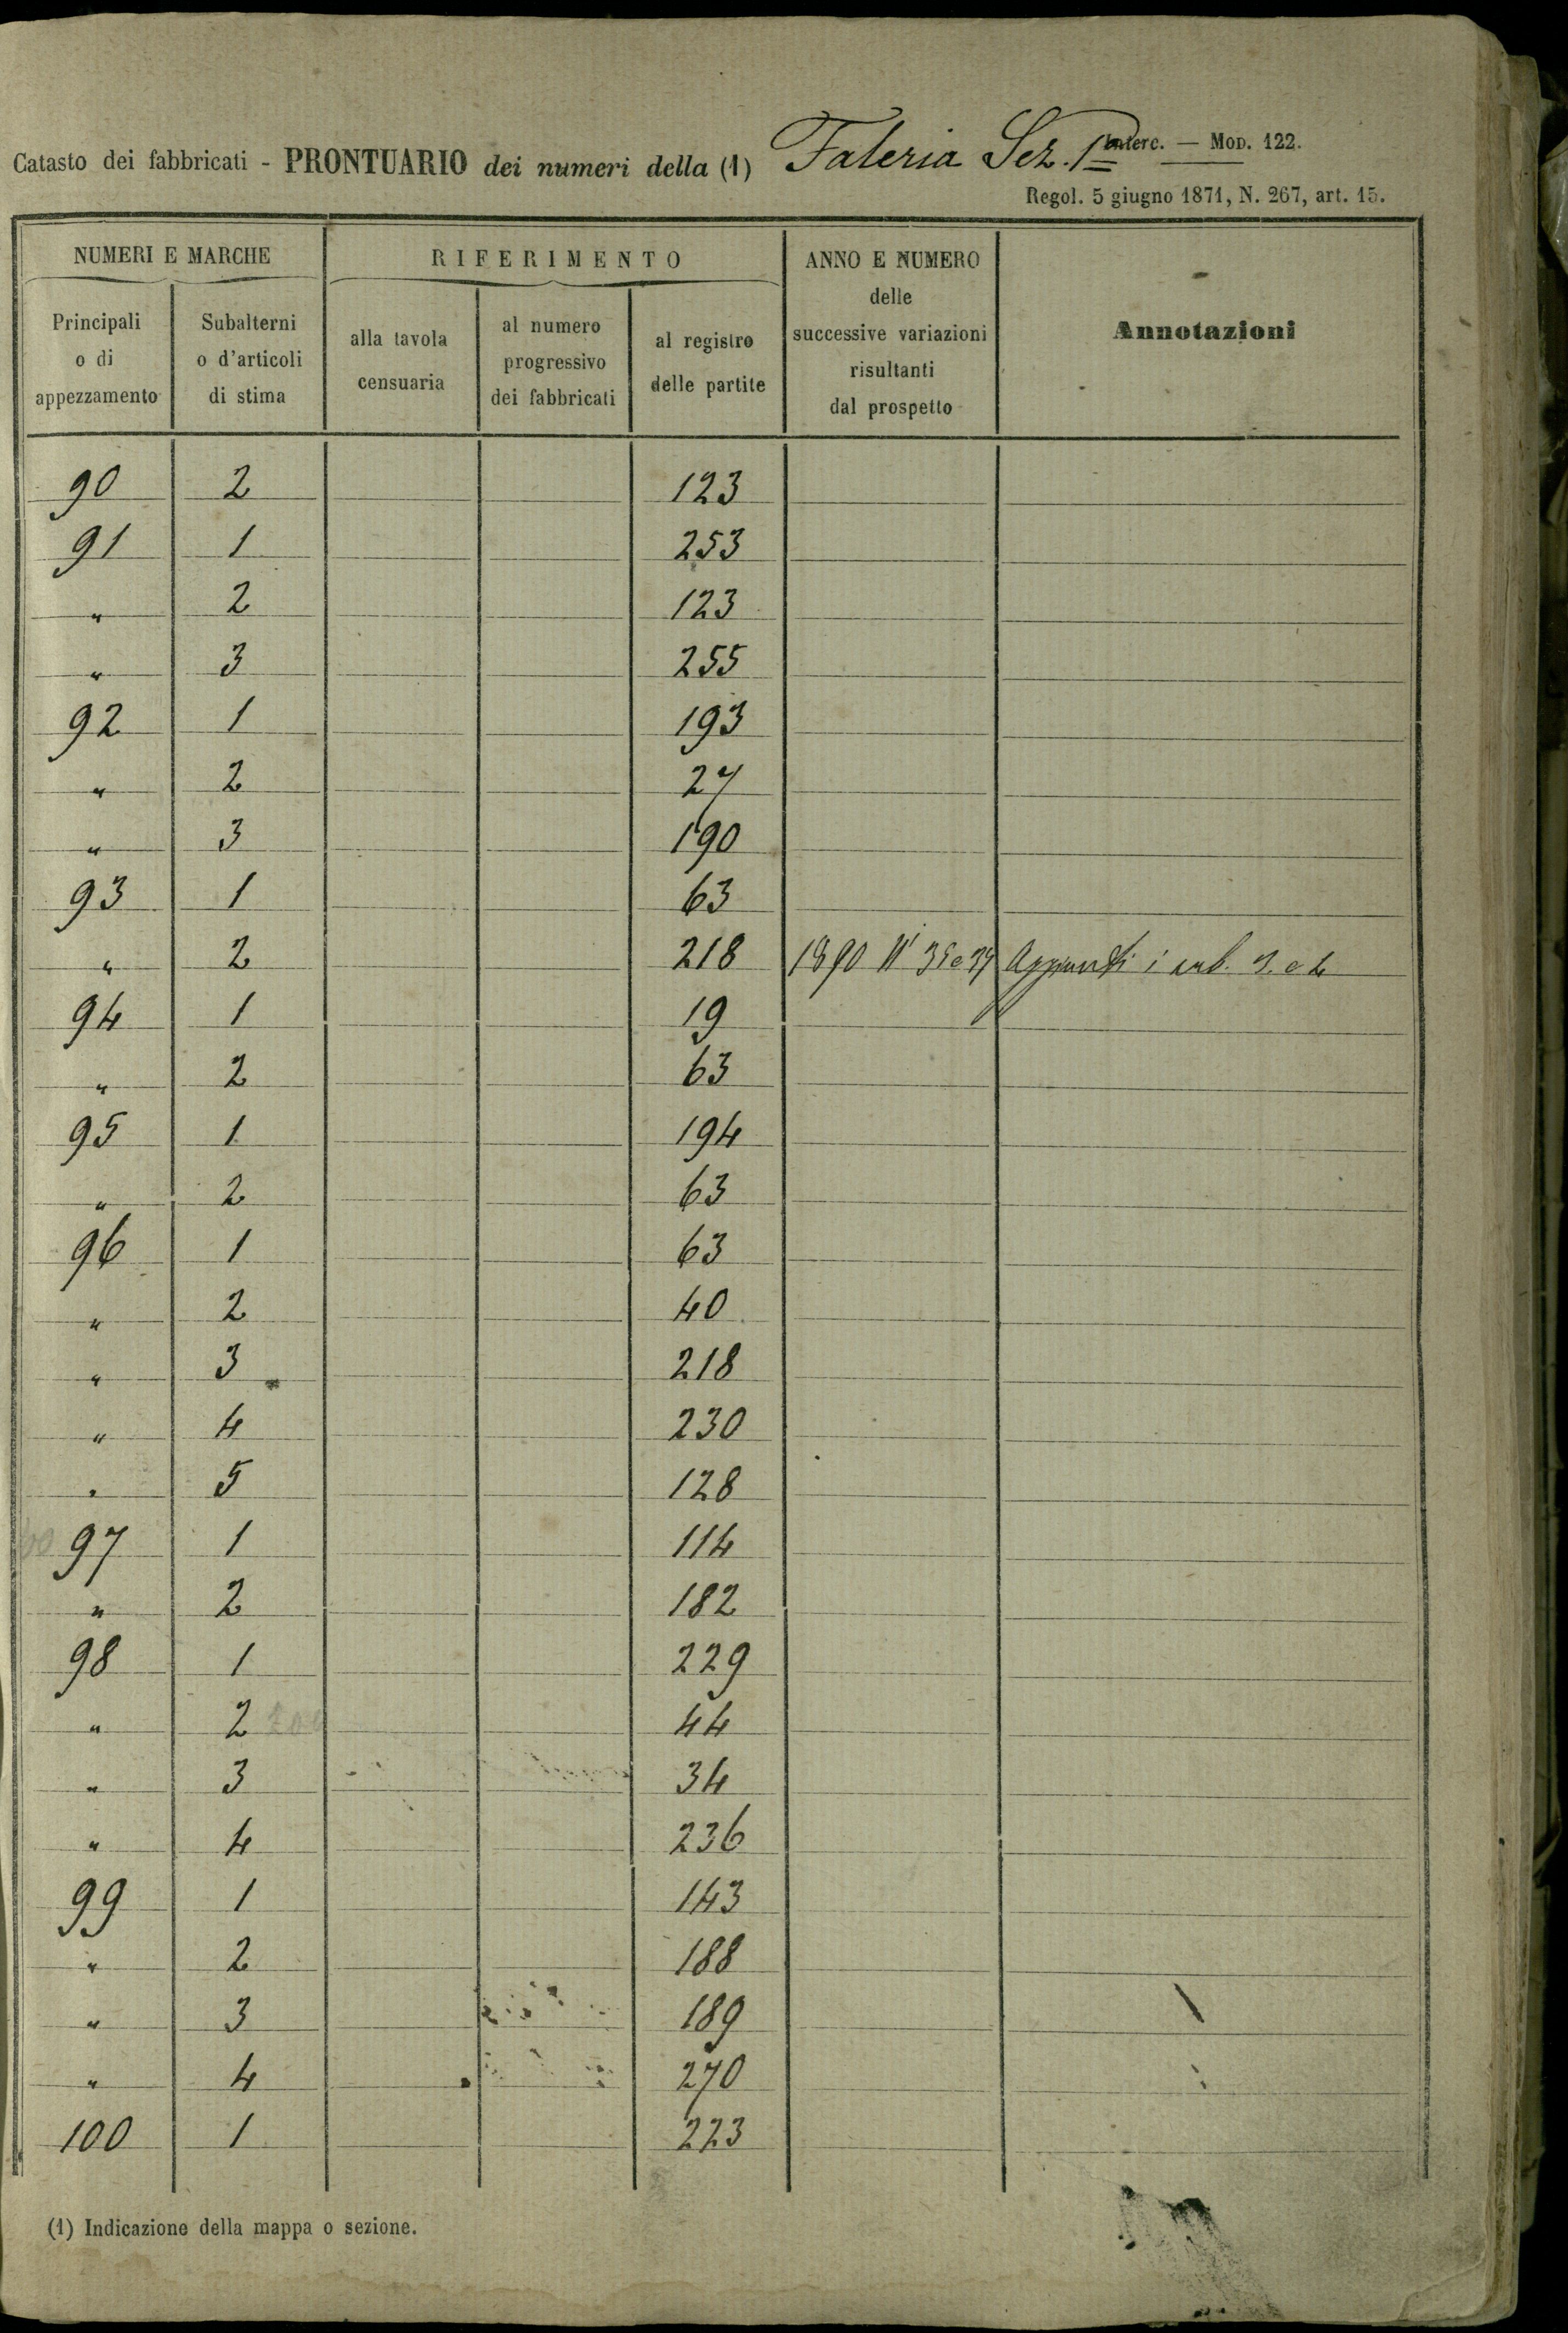 Catasto dei fabbricati - PRONTUARIO dei numeri della (1) Faleria Sez. 1ª Interc. — MOD. 122.
Regol. 5 giugno 1871, N. 267, art. 15.
NUMERI E MARCHE RIFERIMENTO ANNO E NUMERO delle successive variazioni risultanti dal prospetto Annotazioni
Principali o di appezzamento Subalterni o d'articoli di stima alla tavola censuaria al numero progressivo dei fabbricati al registro delle partite
90 2 123
91 1 253
" 2 123
" 3 255
92 1 193
" 2 27
" 3 190
93 1 63
" 2 218 1890 Nⁱ e Aggiunti i sub. 3. e 4
94 1 19
" 2 63
95 1 194
" 2 63
96 1 63
" 2 40
" 3 218
" 4 230
" 5 128
97 1 114
" 2 182
98 1 229
" 2 44
" 3 34
" 4 236
99 1 143
" 2 188
" 3 189
" 4 270
100 1 223
(1) Indicazione della mappa o sezione.